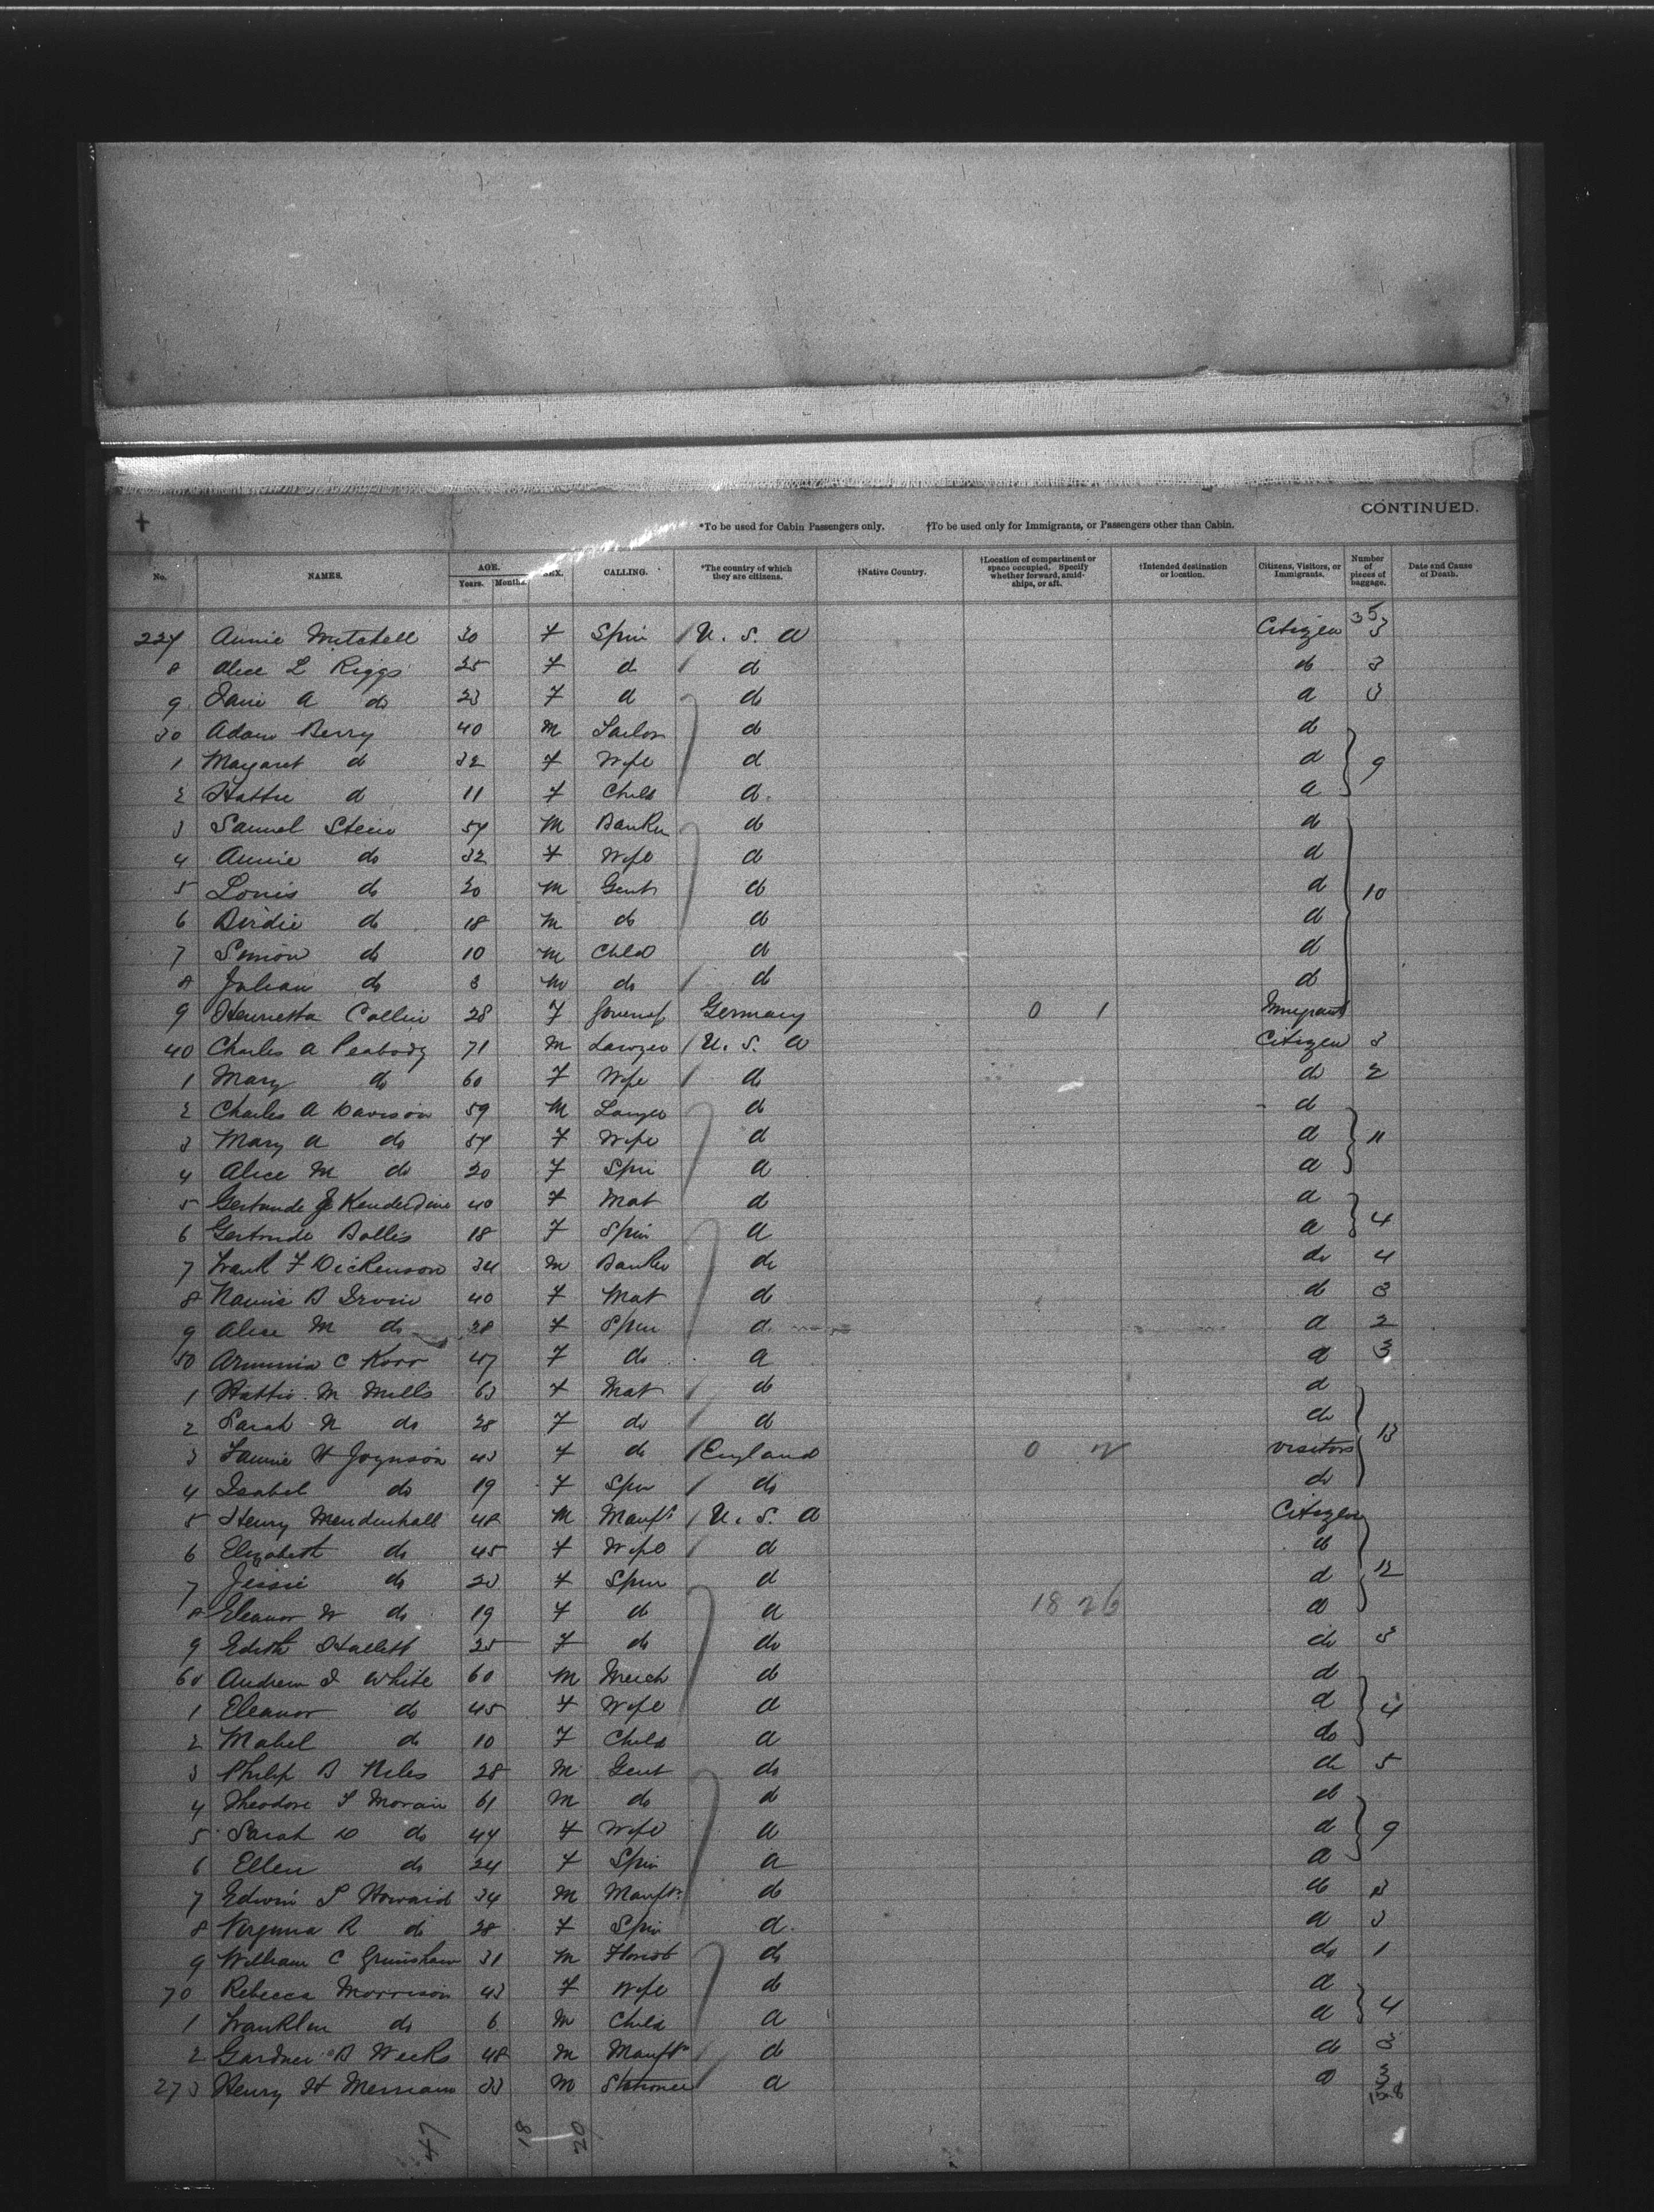 CONTINUED.
*To be used for Cabin Passengers only. †To be used only for Immigrants, or Passengers other than Cabin.
No. NAMES. AGE. Years. Months. SEX. CALLING. *The country of which they are citizens. †Native Country. †Location of compartment or space occupied. Specify whether forward, amidships, or aft. †Intended destination or location. Citizens, Visitors, or Immigrants. Number of pieces of baggage. Date and Cause of Death.
35
227 Annie Mitchell 30 F Spin U. S. A Citizen 3
8 Alice L Riggs 25 F do do do 3
9 Janie A do 23 F do do do 3
30 Adam Berry 40 M Tailor do do
1 Margaret do 32 F Wife do do 9
2 Hattie do 11 F Child do do
3 Samuel Stein 54 M Banker do do
4 Annie do 32 F Wife do do
5 Louis do 20 M Gent do do 10
6 Birdie do 18 M do do do
7 Simon do 10 M Child do do
8 Julian do 3 M do do do
9 Henrietta Collin 28 F Governess Germany 0 1 Immigrant
40 Charles A Peabody 71 M Lawyer U. S. A Citizen 3
1 Mary do 60 F Wife do do 2
2 Charles A Davison 59 M Lawyer do do
3 Mary A do 54 F Wife do do 11
4 Alice M do 20 F Spin do do
5 Gertrude Kenderdine 40 F Mat do do
6 Gertrude Bolles 18 F Spin do do 4
7 Frank F Dickenson 34 M Banker do do 4
8 Nannie B Irvin 40 F Mat do do 3
9 Alice M do 28 F Spin do do 2
50 C Korr 47 F do do do 3
1 Hattie M Mills 63 F Mat do do
2 Sarah N do 28 F do do do 13
3 Fannie H Joynson 43 F do England 0 2 visitors
4 Isabel do 19 F Spin do do
5 Henry Mendenhall 48 M Manftr U. S. A Citizen
6 Elizabeth do 45 F Wife do do
7 Jessie do 23 F Spin do do 12
8 Eleanor W do 19 F do do 18 26 do
9 Edith Hallett 25 F do do do 3
60 Andrew J White 60 M Merch do do
1 Eleanor do 45 F Wife do do 4
2 Mabel do 10 F Child do do
3 Philip B Niles 28 M Gent do do 5
4 Theodore S Moran 61 M do do do
5 Sarah D do 44 F Wife do do 9
6 Ellen do 24 F Spin do do
7 Edwin S Howard 34 M Manftr do do
8 Virginia R do 28 F Spin do do 3
9 William C Grimshaw 31 M Florist do do 1
70 Rebecca Morrison 43 F Wife do do
1 Franklin do 6 M Child do do 4
2 Gardner B Weeks 48 M Manftr do do 3
273 Henry H Merriam 33 M Stationer do do 3
47 18 20